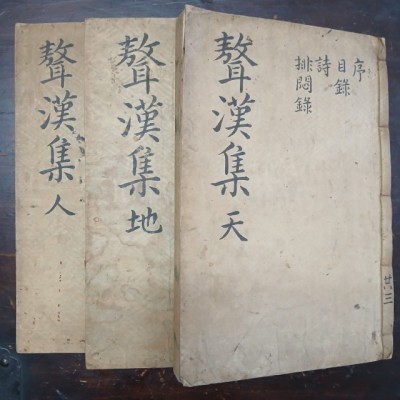 序
目錄
詩
排悶錄
聱漢集 天
聱漢集 地
聱漢集 人
共三